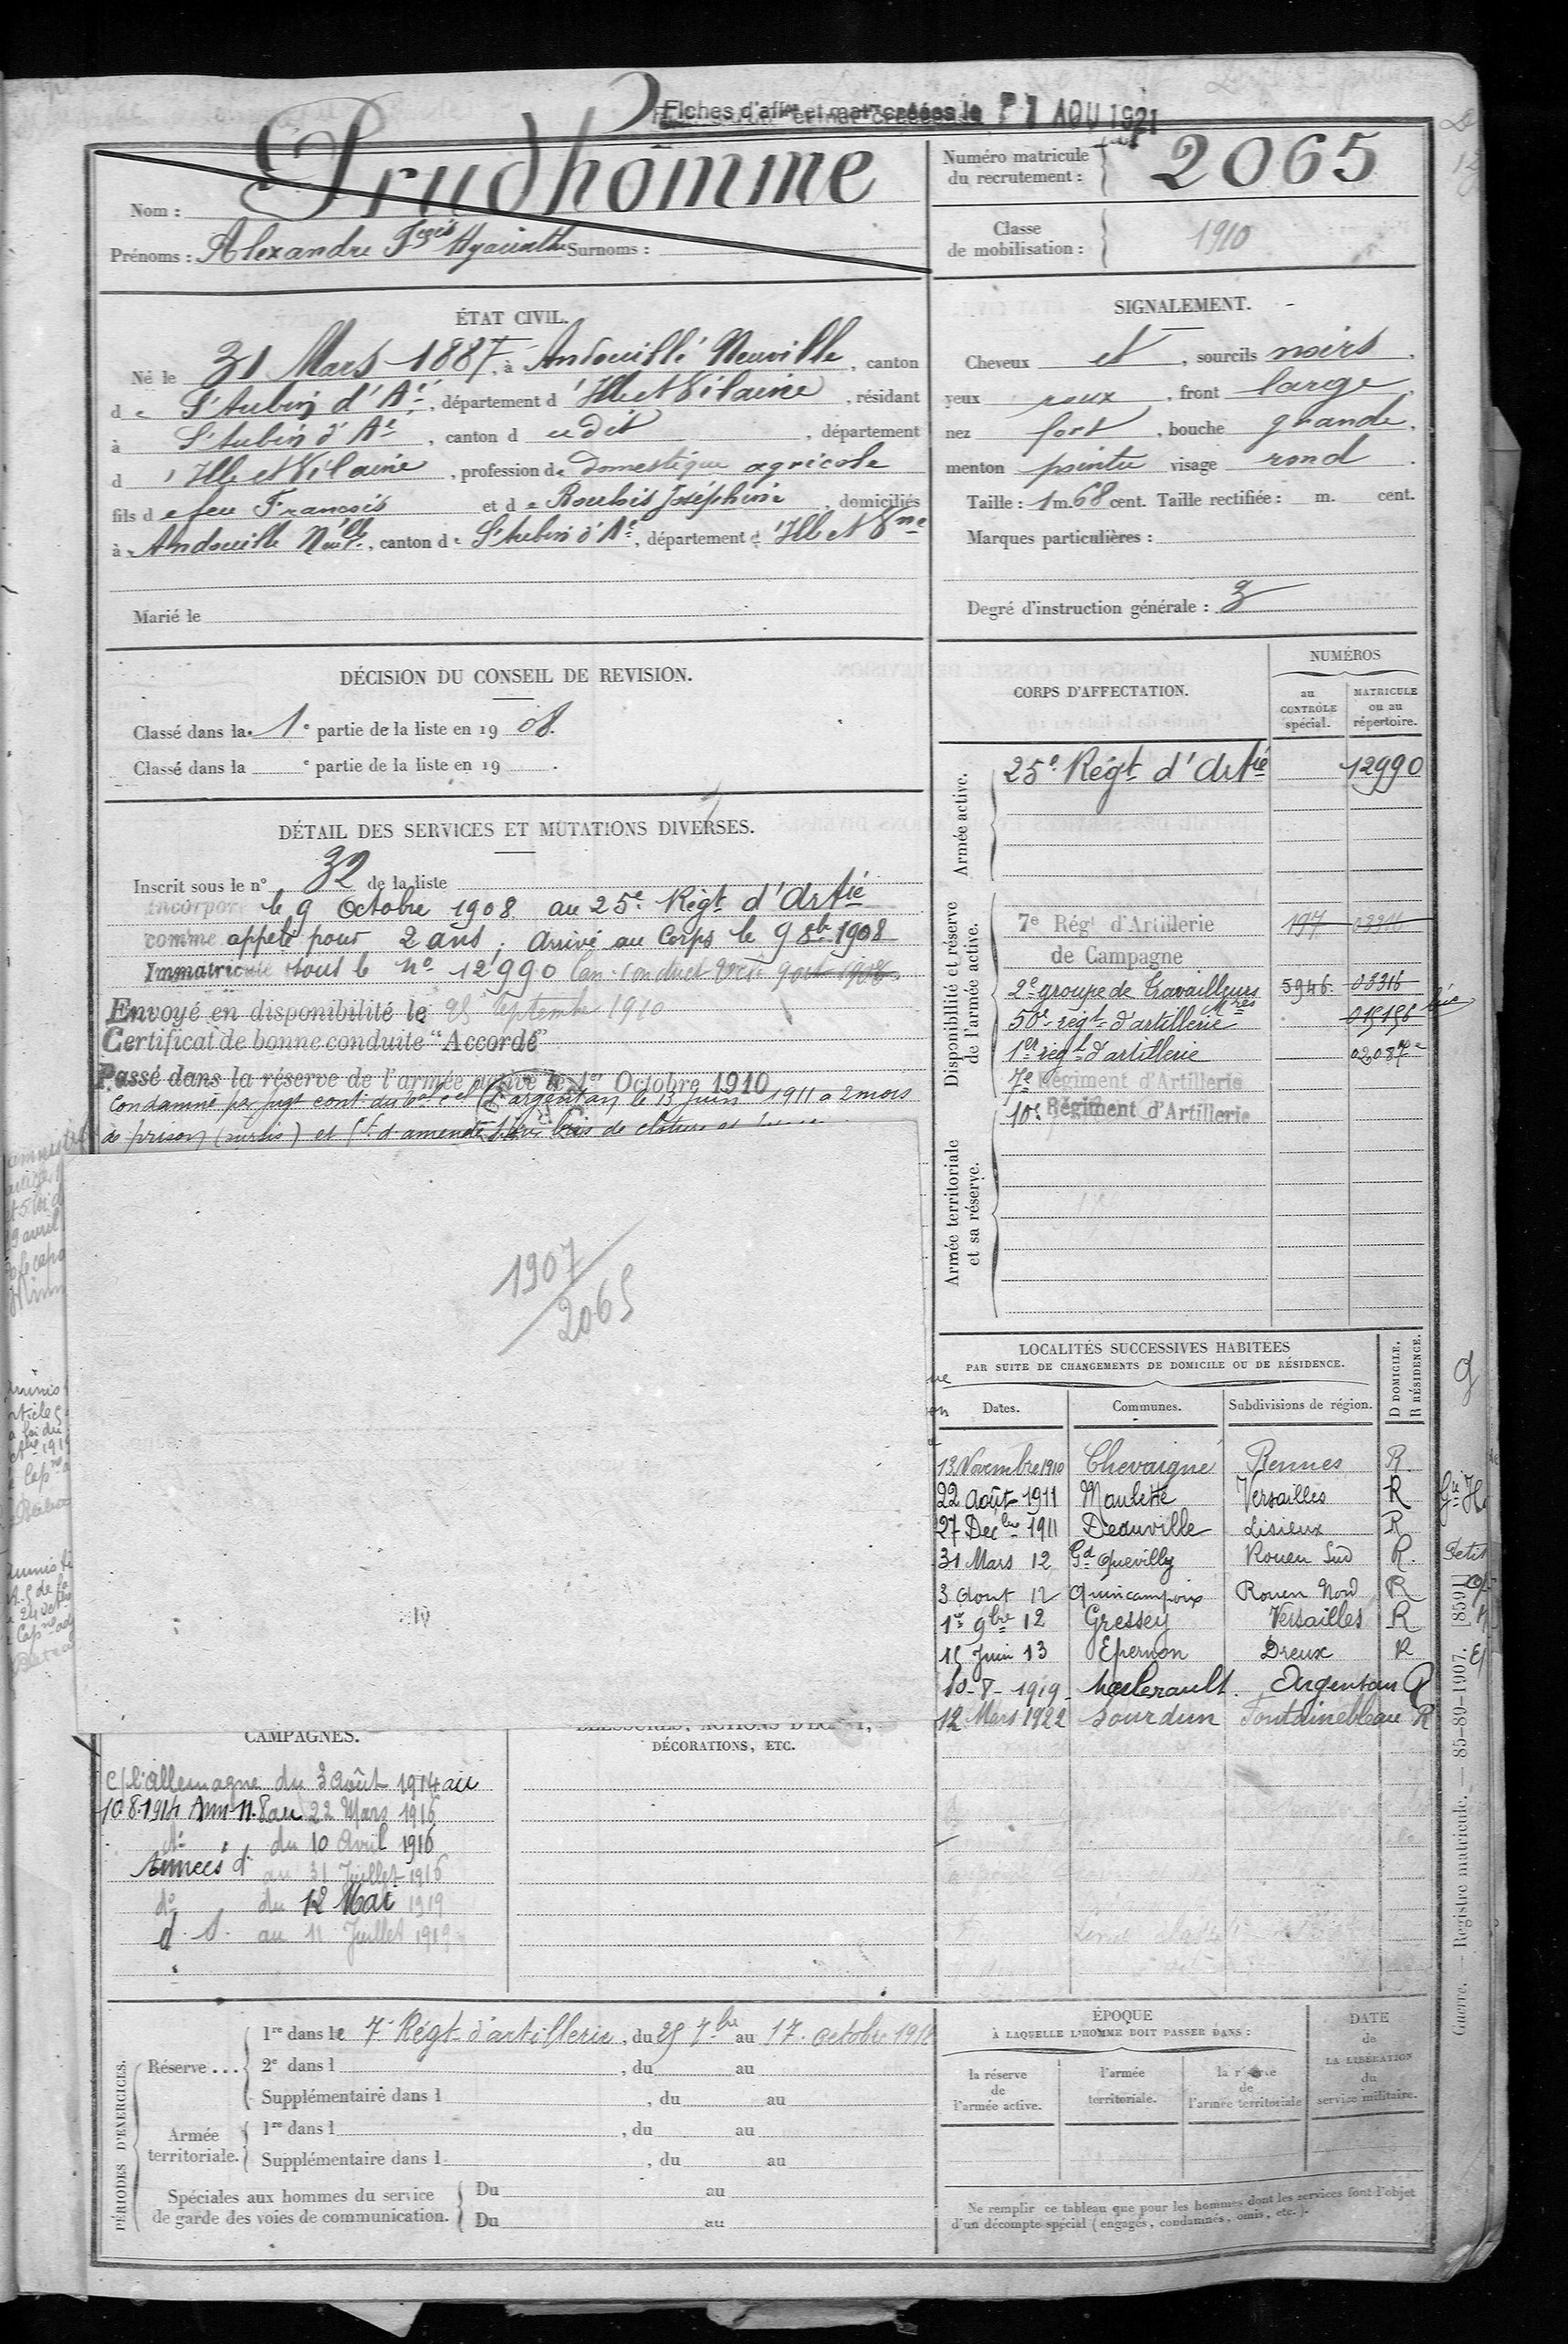 Fiches d'aff^on et mat^le créées le 7 AOU 1921
Nom : Prudhomme
Prénoms : Alexandre Fçois Hyacinthe Surnoms :
Numéro matricule du recrutement : 2065
Classe de mobilisation : 1910
ÉTAT CIVIL.
Né le 31 Mars 1887, à Andouillé Neuville, canton
de St Aubin d'A^é, département d'Ille et Vilaine, résidant
à St Aubin d'A^é, canton d udit, département
d'Ille et Vilaine, profession de domestique agricole
fils de feu François et de Roulois Joséphine domiciliés
à Andouillé Neu^lle, canton de St Aubin d'A^é, département d'Ill et V^ne
Marié le
SIGNALEMENT.
Cheveux et, sourcils noirs,
yeux roux, front large,
nez fort, bouche grande,
menton pointu visage rond.
Taille : 1 m. 68 cent. Taille rectifiée : m. cent.
Marques particulières :
Degré d'instruction générale : 3
DÉCISION DU CONSEIL DE REVISION.
Classé dans la 1e partie de la liste en 1908.
Classé dans la e partie de la liste en 19 .
DÉTAIL DES SERVICES ET MUTATIONS DIVERSES.
Inscrit sous le n° 32 de la liste
Incorporé le 9 Octobre 1908 au 25e Régt d'Artie
comme appelé pour 2 ans. Arrivé au Corps le 9 8bre 1908
Immatriculé sous le No 12990 Can. conduct
Envoyé en disponibilité le 25 Septembre 1910
Certificat de bonne conduite "Accordé"
Passé dans la réserve de l'armée active le 1er Octobre 1910
Condamné par jugt cont. du d'argentan le 13 Juin 1911 a 2 mois
de prison (sursis) et d'amende bris de cloture et
1907
2065
CORPS D'AFFECTATION.
NUMÉROS
au CONTRÔLE spécial.
MATRICULE ou au répertoire.
Armée active.
25e Régt d'Artie 12990
Disponibilité et réserve de l'armée active.
7e Régt d'Artillerie 197 03316
de Campagne
2e groupe de Travailleurs 5946 03316
50e régt d'artillerie 015156
1er régt d'artillerie 02087
7e Régiment d'Artillerie
10e Régiment d'Artillerie
Armée territoriale et sa réserve.
LOCALITÉS SUCCESSIVES HABITÉES
PAR SUITE DE CHANGEMENTS DE DOMICILE OU DE RÉSIDENCE.
Dates. Communes. Subdivisions de région. D DOMICILE. R RÉSIDENCE.
13 Novembre 1910 Chevaigné Rennes R
22 Août 1911 Maulette Versailles R
27 Décbre 1911 Deauville Lisieux R
31 Mars 12 Gd Quevilly Rouen Sud R.
3 Aout 12 Quincampoix Rouen Nord R
1er 9bre 12 Gressey Versailles R
15 Juin 13 Epernon Dreux R
10-8-1919 Merlerault. Argentan R
12 Mars 1922 Sourdun Fontainebleau R
CAMPAGNES.
C/ l'Allemagne du 3 août 1914 au
10.8.1914 au 22 Mars 1916
do du 10 Avril 1916
Armées au 31 Juillet 1916
do du 12 Mai 1919
au 11 Juillet 1919
BLESSURES, ACTIONS D'ÉCLAT,
DÉCORATIONS, ETC.
PÉRIODES D'EXERCICES.
Réserve ... 1re dans le 7e Régt d'artillerie, du 25 7bre au 17 octobre 1912
2e dans l , du au
Supplémentaire dans l , du au
Armée territoriale. 1re dans l , du au
Supplémentaire dans l , du au
Spéciales aux hommes du service
de garde des voies de communication.
Du au
Du au
ÉPOQUE
À LAQUELLE L'HOMME DOIT PASSER DANS :
la réserve de l'armée active.
l'armée territoriale.
la réserve de l'armée territoriale
DATE de LA LIBÉRATION du service militaire.
Ne remplir ce tableau que pour les hommes dont les services font l'objet
d'un décompte spécial (engagés, condamnés, omis, etc.).
Guerre. — Registre matricule. — 85-89-1907. [8591]